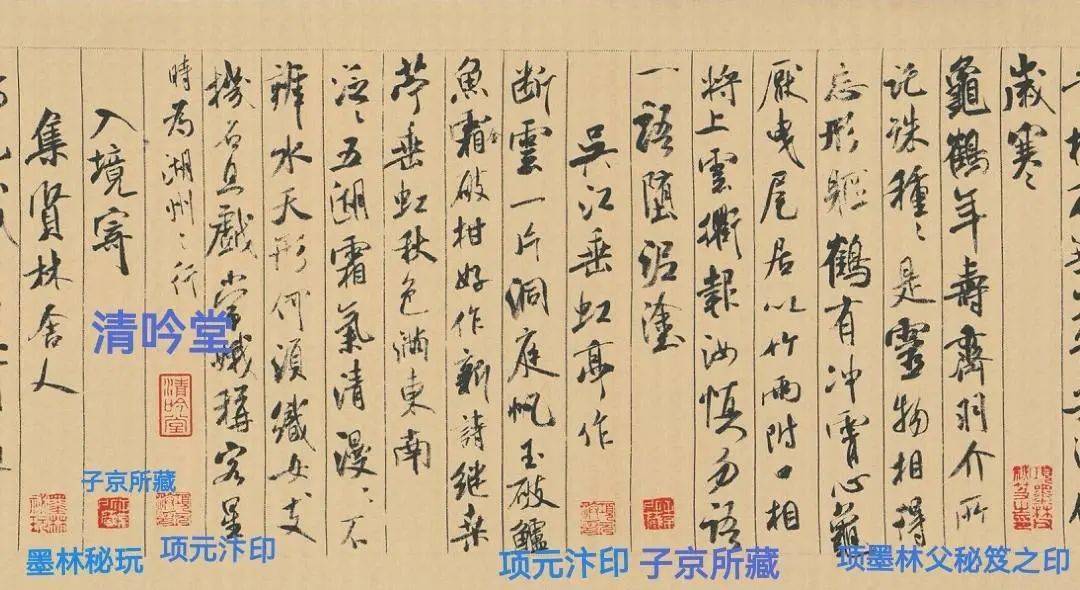 歲寒
龜鶴年壽齊羽介所
託殊種〻是靈物相得
忘形軀鶴有沖霄心龜
厭曳尾居以竹兩附口相
將上雲衢報汝慎勿語
一語墮泥塗
吳江垂虹亭作
断雲一片洞庭帆玉破鱸
魚霜破柑好作新詩継桑
苧垂虹秋色滿東南
泛〻五湖霜氣清漫〻不
辨水天形何須織女支
機石且戲常娥稱客星
時為湖州之行
入境寄
集賢林舍人
清吟堂
清吟堂
子京所藏
墨林秘玩
项元汴印
项元汴印
子京所藏
项墨林父秘笈之印